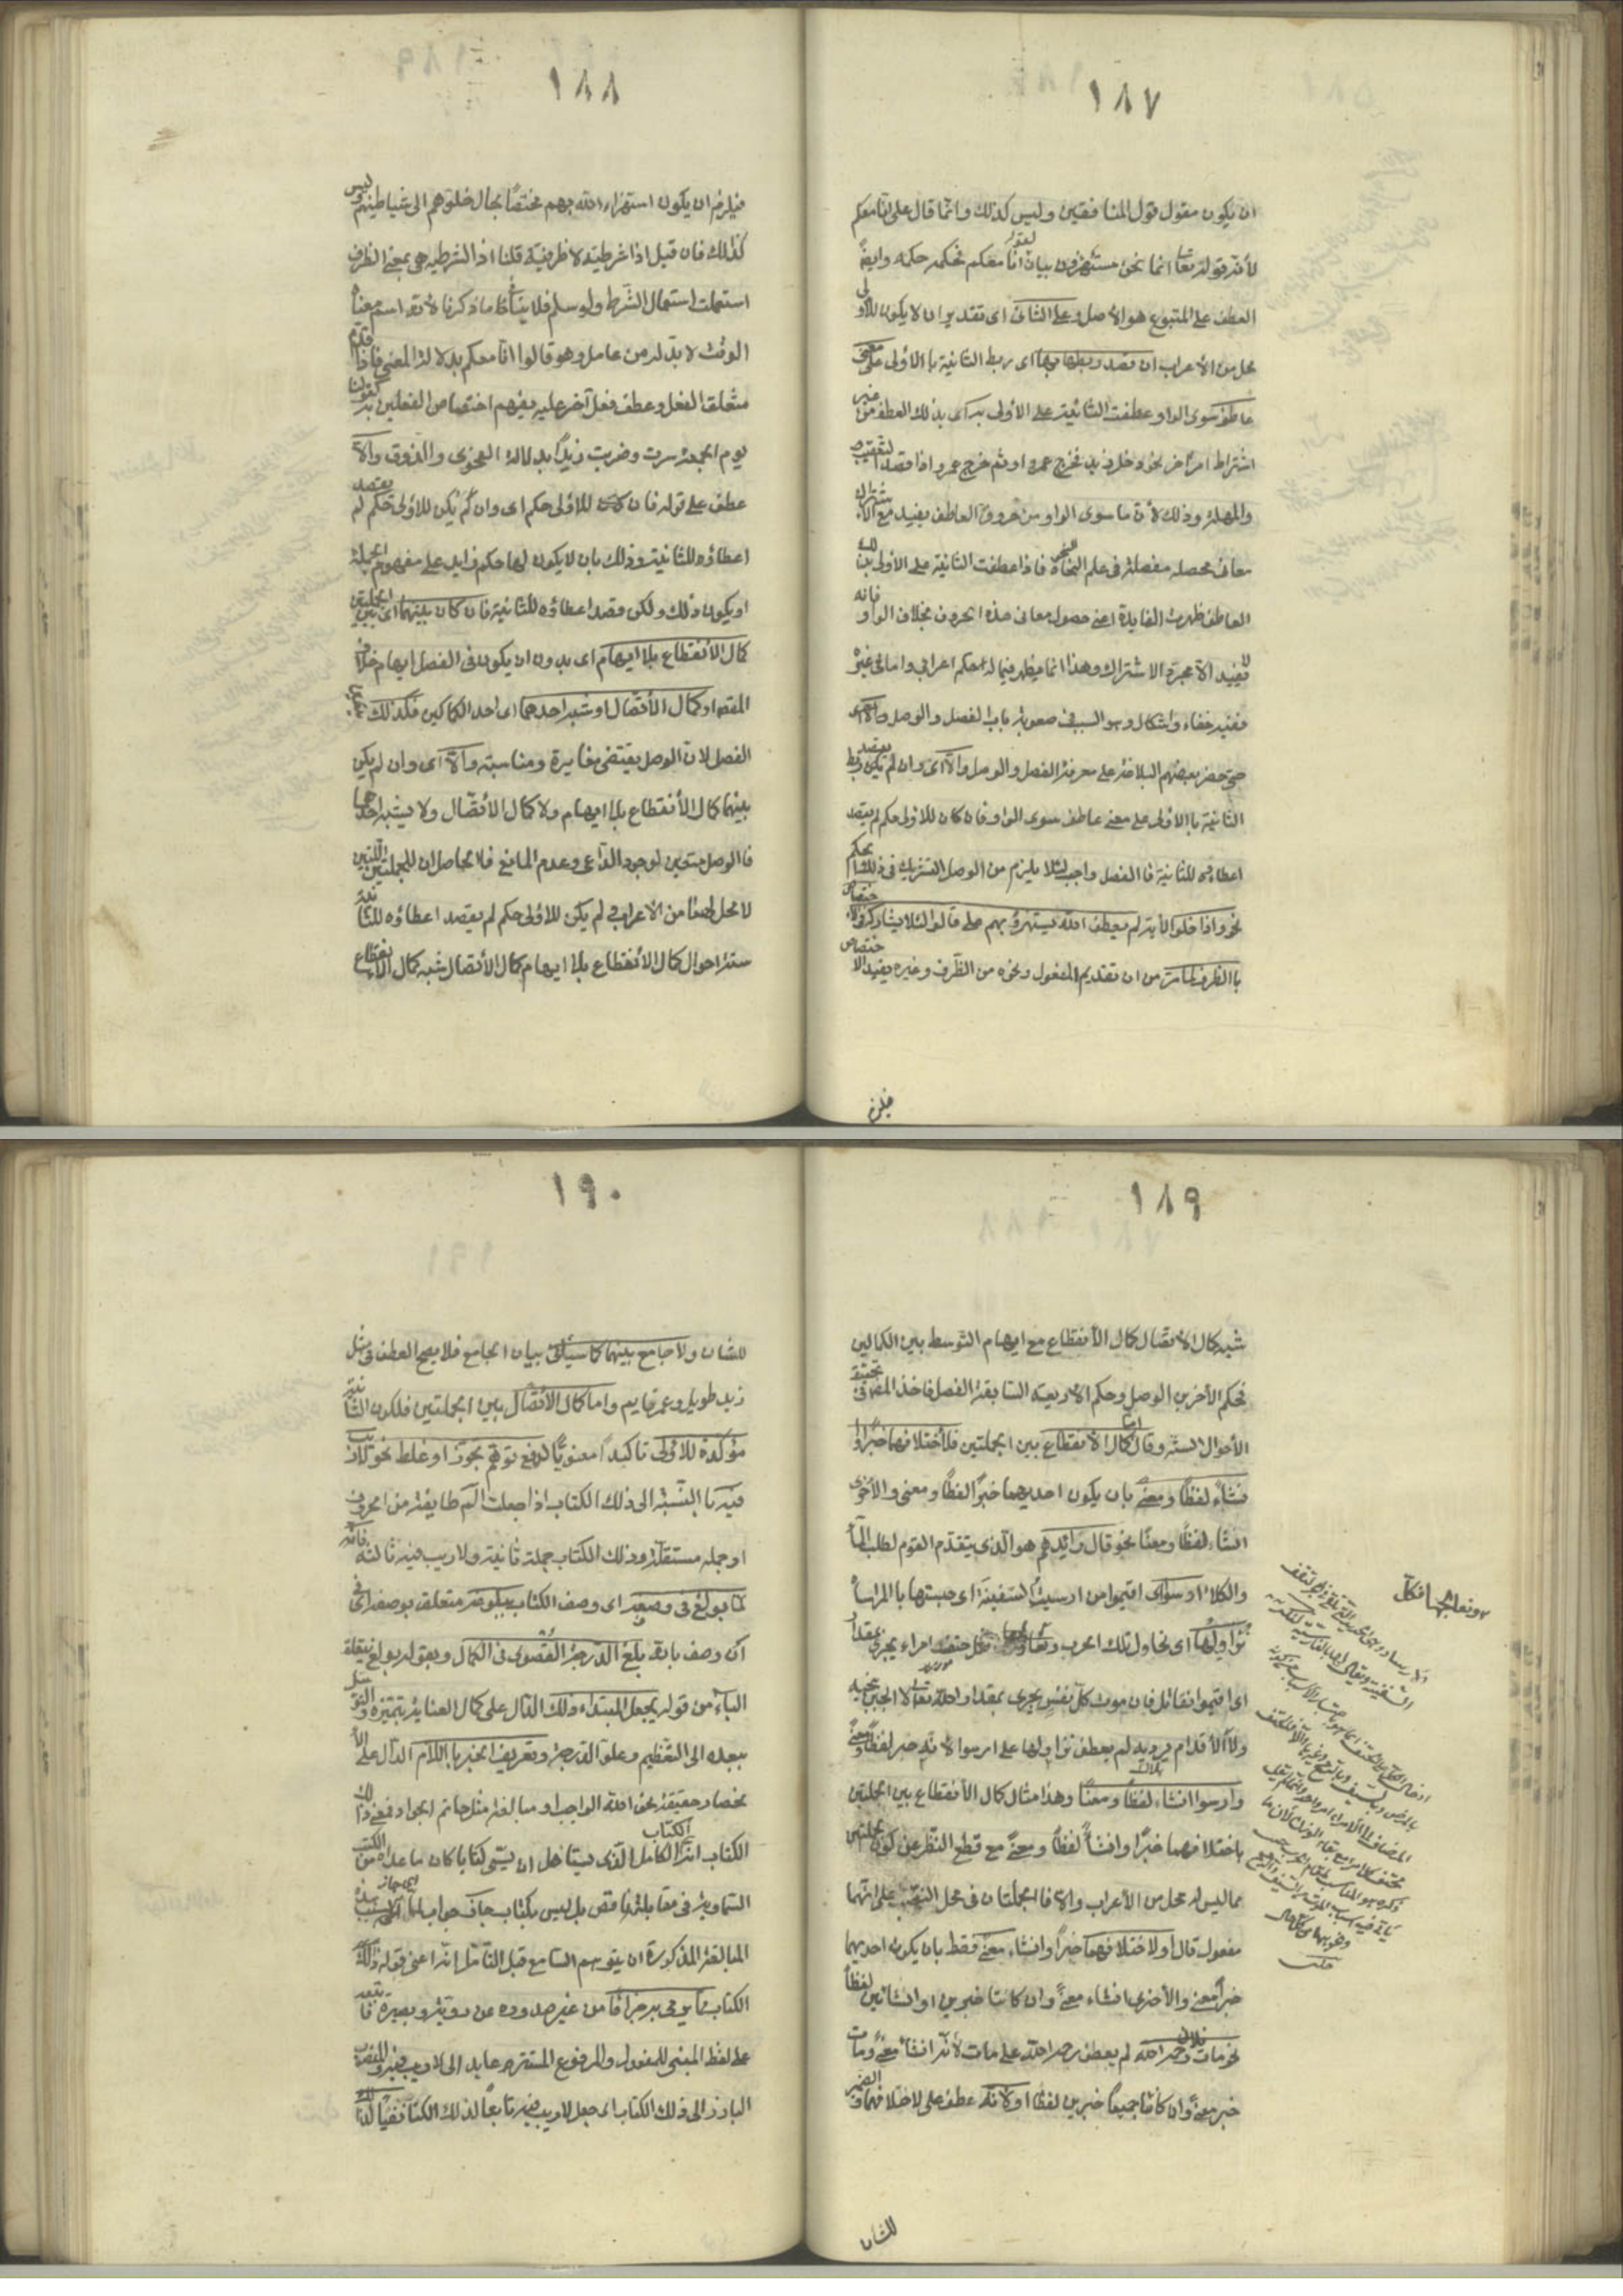 ١٨٧
ان يكون مقول قول المنافقين وليس كذلك وانما قال على انا معكم
لأن قوله تعالى انما نحن مستهزؤن بيان لقوله انا معكم فحكمه حكمه وايضً
العطف على المتبوع هو الأصل وعلى الثانى اى تقدير ان لا يكون للأولى
محل من الأعراب ان قصد ربطها بها اى ربط الثانية باالأولى على معنى
عاطف سوى الواو عطفت الثانية على الأولى به اى بذلك العطف من غير
اشتراط امرٍ اخر نحو دخل زيد فخرج عمرو او ثم خرج عمرو اذا قصد التعقيب
والمهلة وذلك لأن ما سوى الواو من حروف العاطف يفيد مع الاشتراك
معانى محصله مفصلة فى علم النحو فاذا عطفت الثانية على الاولى بذلك
العاطف ظهرت الفايدة اعنى حصول معانى هذه الحروف بخلاف الواو فانه
لا يفيد الا مجرد الاشتراك وهذا انما يظهر فيما له حكم اعرابى واما فى غيره
ففيه خفاء واشكال وهو السبب فى صعوبة باب الفصل والوصل
حتى حصر بعضهم البلاغة على معرفة الفصل والوصل والّا اى وان لم يقصد ربط
الثانية باالأولى على معنى عاطف سوى الواو فان كان للاولى حكم لم يقصد
اعطاؤه للثانية فاالفصل واجب لئلا يلزم من الوصل التشريك فى ذلك الحكم
نحو واذا خلوا الأية لم يعطف الله يستهزؤ بهم على قالوا لئلا يشاركه فى الاختصاص
باالظرف لما مرّ من ان تقديم المفعول ونحوه من الظرف وغيره يفيد الاختصاص
فيلزم
١٨٨
فيلزم ان يكون استهزاء الله بهم مختصاً بحال خلوهم الى شياطينهم وليس
كذلك فان قيل اذا شرطية لا ظرفية قلنا اذا الشرطيه هى بمعنى الظرف
استعملت استعمال الشرط ولو سلم فلا ينافى ما ذكرنا لأنه اسم معناه
الوقت لا بدّ له من عامل وهو قالوا انا معكم بدلالة المعنى فاذا قدم
متعلق الفعل وعطف فعل آخر عليه يفهم اختصاص الفعلين به كقولنا
يوم الجمعة سرت وضربت زيداً بدلالة الفحوى والذوق والّا
عطف على قوله فان كان للاولى حكم اى وان لم يكن للاولى حكم لم يقصد
اعطاؤه للثانية وذلك بان لا يكون لها حكم زايد على مفهوم الجملة
او يكون ذلك ولكن قصد اعطاؤه للثانية فان كان بينهما اى بين الجملتين
كمال الأنقطاع بلا ايهام اى بدون ان يكون فى الفصل ايهام خلاف
المقصود او كمال الأتصال او شبه احدهما اى احد الكمالين فكذلك
الفصل لان الوصل يقتضى مغايرة ومناسبة والّا اى وان لم يكن
بينهما كمال الأنقطاع بلا ايهام ولا كمال الأتصال ولا شبه احدهما
فاالوصل متعين لوجود الداعى وعدم المانع فلا لحاصل ان للجملتين اللتين
لا محل لهما من الاعراب لم يكن للاولى حكم لم يقصد اعطاؤه للثانية
ستة احوال كمال الأنقطاع بلا ايهام كمال الأتصال شبه كمال الانقطاع
١٨٩
شبه كمال الأتصال كمال الأنقطاع مع ايهام التوسط بين الكمالين
فحكم الأخرين الوصل وحكم الأربعة السابقة الفصل فاخذ المص فى تحقيق
الأحوال الستة وقال اما كمال الأنقطاع بين الجملتين فلأختلافهما خبراً و
انشاءً لفظاً ومعنى بان يكون احديهما خبراً لفظاً ومعنى والأخرى
انشاء لفظاً ومعناً نحو قال رائدهم هو الذى يتقدم القوم لطلب الماء
والكلاء ارسوا اى اقيموا من ارسيت السفينة اى حبستها باالمرساة
نزاولها اى نحاول تلك الحرب ونعالجها فكل حتف امراء يجرى بمقدار
اى اقيموا نقاتل فان موت كل نفس يجرى بمقدار الله تعالى لا الجبن ينجيه
ولا الأقدام يرديه لم يعطف نزاولها على ارسوا لانه خبر لفظاً ومعنىً
وارسوا انشاء لفظاً ومعناً وهذا مثال كمال الأنقطاع بين الجملتين
باختلافهما خبراً وانشاءً لفظاً ومعنىً مع قطع النظر عن كون الجملتين
مما ليس له محل من الأعراب والا فاالجملتان فى محل النصب على انهما
مفعول قال او لأختلافهما خبراً وانشاء معنىً فقط بان يكون احديهما
خبراً معنى والأخرى انشاء معنىً وان كانتا خبرين او انشائين لفظاً
نحو مات فلان رحمه الله لم يعطف رحمه الله على مات لأنه انشاء معنىً ومات
خبر معنىً وان كانتا جميعاً خبرين لفظاً او لأنه عطف على لاختلافهما والضمير
للشان
ونعالجها فكل
١٩٠
للشان ولا جامع بينهما كما سيأتى بيان الجامع فلا يصح العطف فى مثل
زيد طويل وعمر قايم واما كمال الأتصال بين الجملتين فلكون الثانية
مؤكدة للاولى تاكيداً معنوياً لدفع توهم تجوز او غلط نحو لا ريب
فيه باالنسبة الى ذلك الكتاب اذا جعلت الم طايفة من الحروف
او جمله مستقلة وذلك الكتاب جملة ثانية ولا ريب فيه ثالثة فانه
لما بولغ فى وصفه اى وصف الكتاب ببلوغه متعلق بوصفه اى فى
ان وصف بانه بلغ الدرجة القصوى فى الكمال وبقوله بولغ يتعلق
الباء من قوله بجعل المبتداء ذلك الدال على كمال العناية بتميزه والتوسل
ببعده الى التعظيم وعلو الدرجة وتعريف الخبر باللام الدال على الأ
نحصار حقيقة نحو الله الواجب او مبالغة مثل حاتم الجواد فمعنى ذلك
الكتاب انه الكتاب الكامل الذى يستاهل ان يسمى كتابا كان ما عداه من الكتب
السماوية فى مقابلته ناقص بل ليس بكتاب جاز جواب لما اى جاز بسبب هذه
المبالغة المذكورة ان يتوهم السامع قبل التأمل انه اعنى قوله ذلك
الكتاب مما يرمى به جزافاً من غير صدوره عن روية وبصيرة فاتبعه
على لفظ المبنى للمفعول والمرفوع المستتر عايد الى لا ريب فيه والمنصوب
البارز الى ذلك الكتاب اى جعل لا ريب فيه تابعاً لذلك الكتاب نفياً لذلك